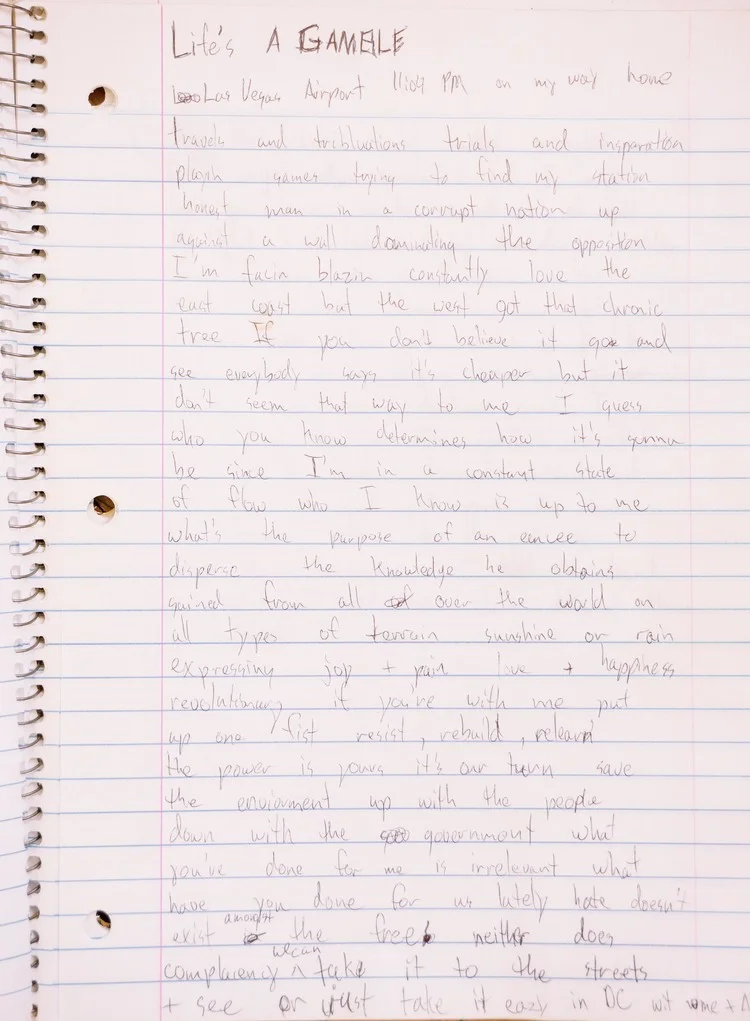 Life's A GAMBLE
Las Vegas Airport 11:04 PM on my way home
travels and tribluations trials and insparation
playin games trying to find my station
honest man in a corrupt nation up
against a wall dominating the opposition
I'm facin blazin constantly love the
east coast but the west got that chronic
tree If you don't believe it go and
see everybody says it's cheaper but it
don't seem that way to me I guess
who you know determines how it's gunna
be since I'm in a constant state
of flow who I know is up to me
what's the purpose of an emcee to
disperse the knowledge he obtains
gained from all over the world on
all types of terrain sunshine or rain
expressing joy + pain love + happiness
revolutionary if you're with me put
up one fist resist, rebuild, relearn
the power is yours it's our turn save
the enviorment up with the people
down with the government what
you've done for me is irrelevant what
have you done for us lately hate doesn't
exist amongst the free neither does
complacency we can take it to the streets
+ see or just take it eazy in DC wit me +